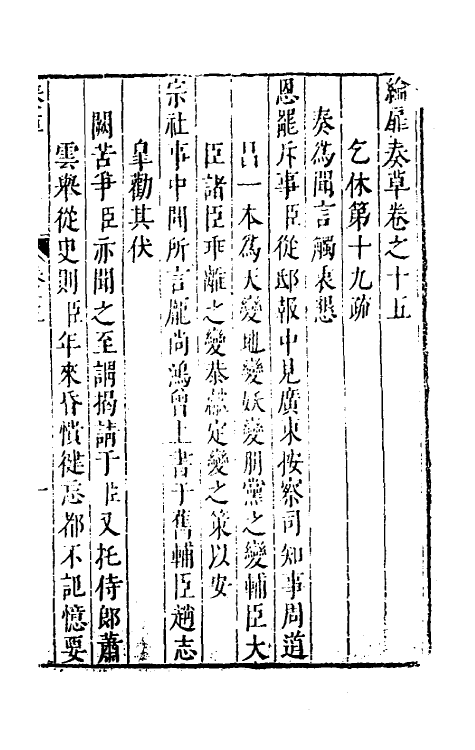 綸扉奏草卷之十五
乞休第十九疏
奏爲聞言觸衷懇
恩罷斥事臣從邸報中見廣東按察司知事周道
昌一本爲天變地變妖變朋黨之變輔臣大
臣諸臣乖離之變恭 定變之策以安
宗社事中間所言龐尚鴻曾上書于舊輔臣趙志
皐勸其伏
闕苦爭臣亦聞之至謂揭請于臣又托侍郎蕭
雲舉從史則臣年來昏憒健忘都不記憶要